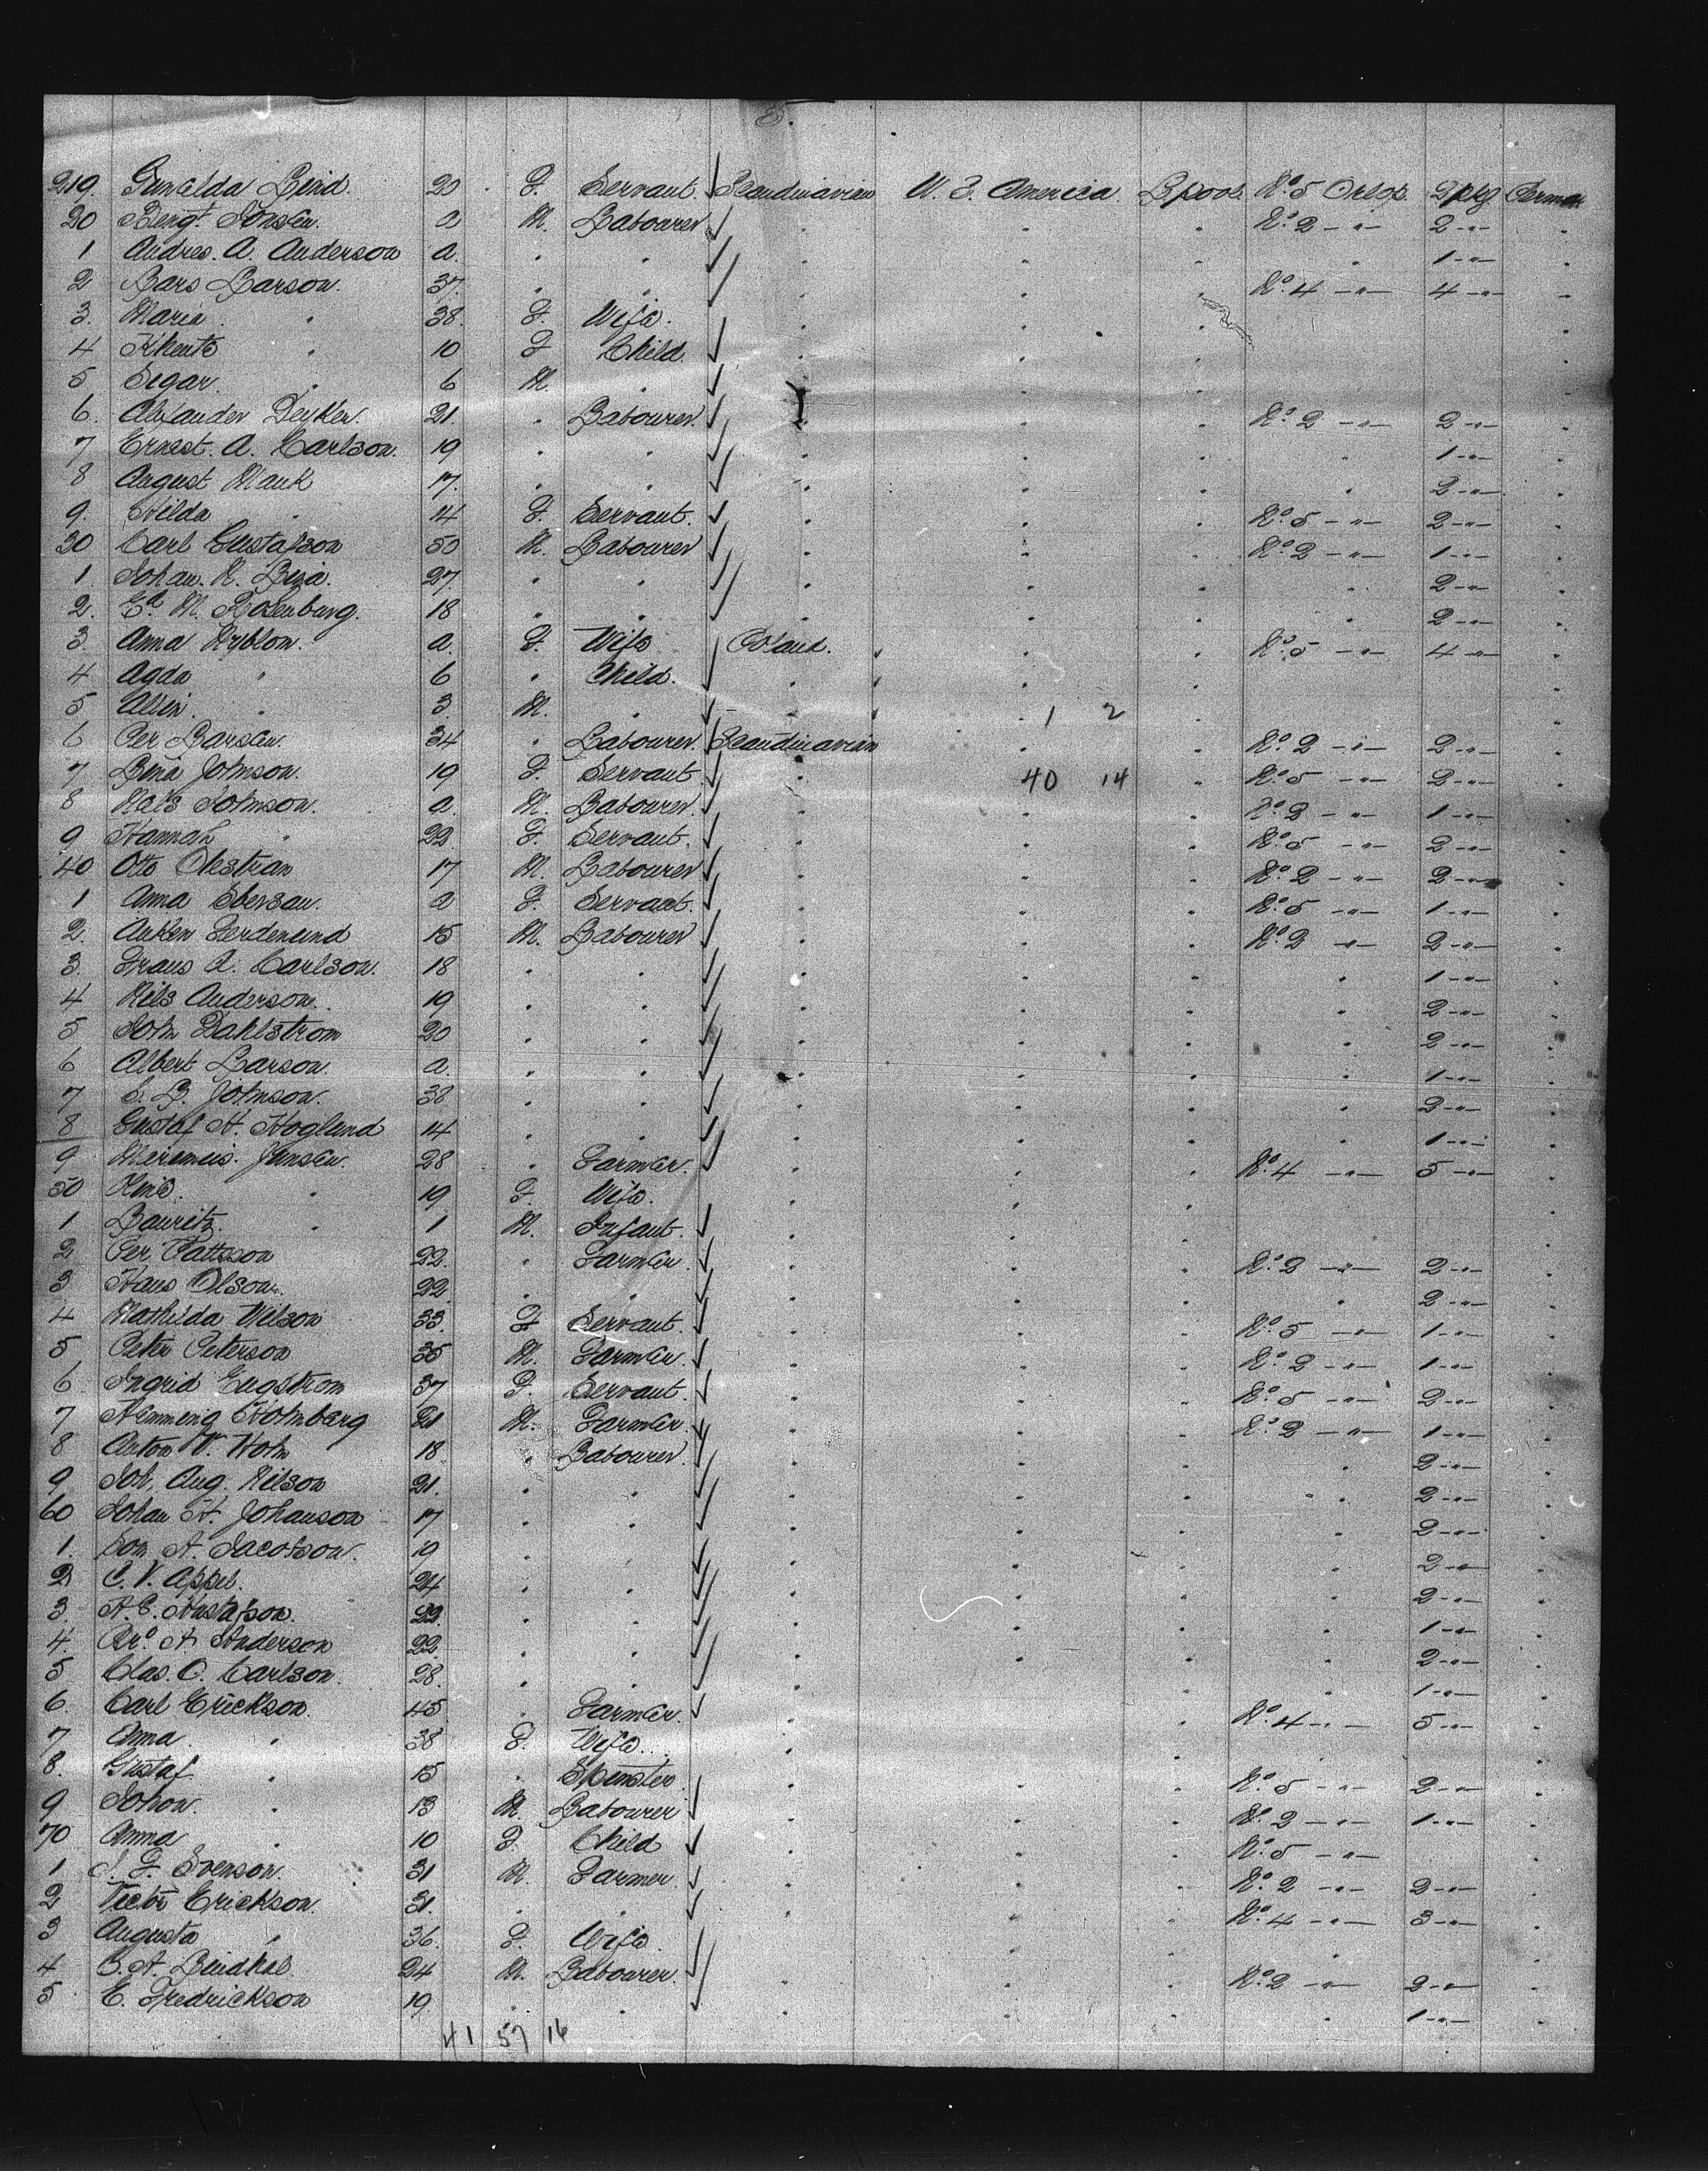 8.
219. Gunilda Lind. 20 . F. Servant. Scandinavian U. S. America. Lpool. No. 5 Orlop. 2 pkg German
20 Bengt. Jonsen. a M. Labourer . . . No. 2 -"- 2 -"- .
1 Andres. A. Anderson a. . . . . . . 1 -"- .
2 Lars Larson. 37. . . . . . No. 4 -"- 4 -"- .
3. Maria " 38. F. Wife. . . . .
4 " 10 F Child. . . . .
5 Segar. " 6 M. . . . . .
6. Alexander 21. . Labourer. . . . No. 2 -"- 2 -"- .
7 Ernest. A. Carlson. 19 . . . . . . 1 -"- .
8 August Mank 17. . . . . . . 2 -"- .
9. Hilda " 14 F. Servant. . . . No. 5 -"- 2 -"- .
30 Carl Gustafson 50 M. Labourer . . . No. 2 -"- 1 -"- .
1. Johan. N. 27. . . . . . . 2 -"- .
2. M. Rosenburg. 18 . . . . . . 2 -"- .
3. Anna Nyblom. a. F. Wife . . . No. 5 -"- 4 -"- .
4 Agda " 6 . Child. . . . .
5 " 3 M. . . . 1 2 . .
6 Per Larsen. 34 . Labourer. Scandinavian . . No. 2 -"- 2 -"- .
7 Lina Johnson. 19 F. Servant . 40 14 . No. 5 -"- 2 -"- .
8 Nals Johnson. a. M. Labourer. . . . No. 2 -"- 1 -"- .
9 Hannah " 22. F. Servant. . . . No. 5 -"- 2 -"- .
40 Otto 17 M. Labourer . . . No. 2 -"- 2 -"- .
1 Anna a F. Servant. . . . No. 5 -"- 1 -"- .
2. Ferdenund 15 M. Labourer . . . No. 2 -"- 2 -"- .
3. Frans A. Carlson. 18 . . . . . . 1 -"- .
4 Nils Anderson. 19 . . . . . . 2 -"- .
5 John Dahlstrom 20 . . . . . . 2 -"- .
6 Albert Larson. a. . . . . . . 1 -"- .
7 S. L. Johnson. 38 . . . . . . 2 -"- .
8 Gustaf H. Hoglund 14 . . . . . . 1 -"- .
9 Jansen. 28 . Farmer. . . . No. 4 -"- 5 -"- .
50 " 19 F. Wife. . . . .
1 Lauritz. " 1 M. Infant. . . . .
2 Per. Pattsson 22. . Farmer. . . . No. 2 -"- 2 -"- .
3 Hans Olson. 22. . . . . . . 2 -"- .
4 Mathilda Wilson 33. F Servant. . . . No. 5 -"- 1 -"- .
5 Peter Peterson 35 M. Farmer. . . . No. 2 -"- 1 -"- .
6 Ingrid Engstrom 37 F. Servant. . . . No. 5 -"- 2 -"- .
7 Hemming Holmberg 21 M. Farmer. . . . No. 2 -"- 1 -"- .
8 Anton V. Holm 18 . Labourer. . . . . 2 -"- .
9 Joh. Aug. Nilson 21. . . . . . . 2 -"- .
60 Johan H. Johanson 17 . . . . . . 2 -"- .
1. A. Jacobson. 19 . . . . . . 2 -"- .
2 C. V. Appel. 24 . . . . . . 2 -"- .
3. A. E. Gustafson. 22. . . . . . . 1 -"- .
4. A. Anderson 22. . . . . . . 2 -"- .
5 Clas. O. Carlson. 28. . . . . . . 1 -"- .
6. Carl Erickson. 45. . Farmer. . . . No. 4 -"- 5 -"- .
7 Anna " 38 F. Wife. . . . . .
8. Gustaf " 15 . Spinster. . . . No. 5 -"- 2 -"- .
9 Johon. " 13 M. Labourer . . . No. 2 -"- 1 -"- .
70 Anna " 10 F. Child . . . No. 5 -"- .
1 J. F. Svenson. 31 M. Farmer . . . No. 2 -"- 2 -"- .
2 Victor Erickson. 31. . . . . . No. 4 -"- 3 -"- .
3 Augusta " 36. F. Wife. . . . . .
4 24 M. Labourer. . . . No. 2 -"- 2 -"- .
5 E. Fredrickson 19. . . . . . . 1 -"- .
41 57 16